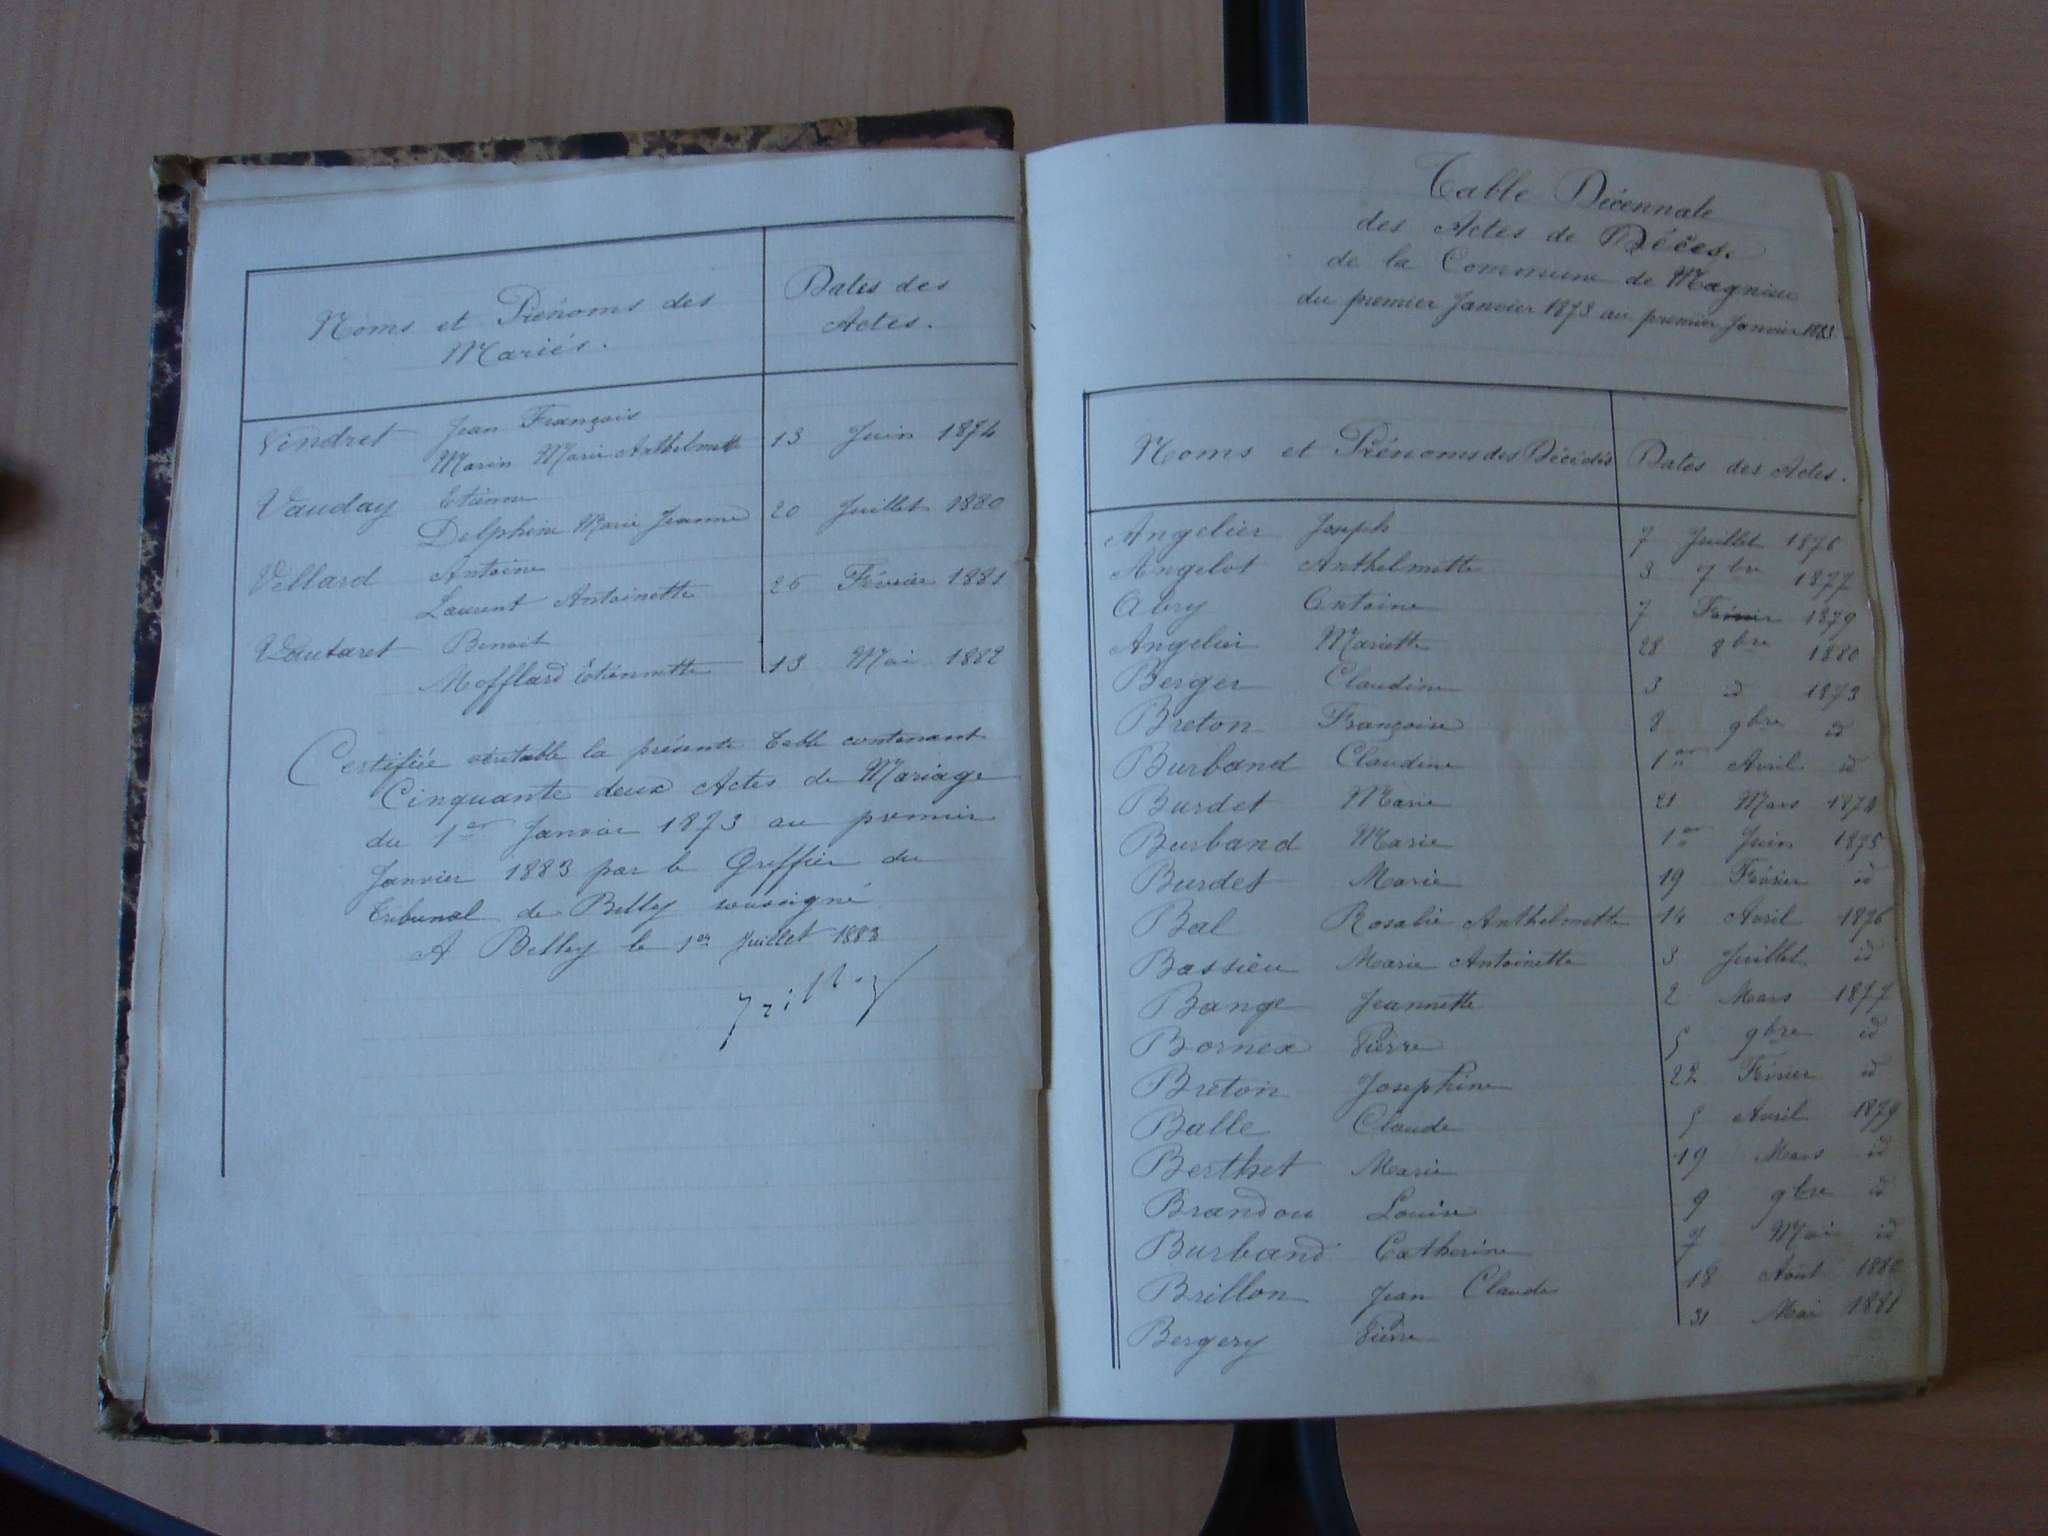 Noms et Prénoms des
Mariés.
Dates des
Actes.
Vindret Jean François
Marin Marie Anthelmette 13 Juin 1874
Vauday Etienne
Delphine Marie Jeanne 20 Juillet 1880
Vellard Antoine
Laurent Antoinette 26 Février 1881
Vautaret Benoit
Mofflard Etiennette 13 Mai 1882
Certifiée véritable la présente table contenant
Cinquante deux Actes de Mariage
du 1er Janvier 1873 au premier
Janvier 1883 par le Greffier du
Tribunal de Belley soussigné
A Belley le 1er Juillet 1883
Table Décennale
des Actes de Décès.
de la Commune de Magnieu
du premier Janvier 1873 au premier Janvier 1883
Noms et Prénoms des Décédés Dates des Actes.
Angelier Joseph 7 Juillet 1876
Angelot Anthelmette 3 7bre 1877
Abry Antoine 7 Février 1879
Angelier Mariette 28 8bre 1880
Berger Claudine 3 id 1873
Breton Françoise 8 9bre id
Burband Claudine 1er Avril id
Burdet Marie 21 Mars 1874
Burband Marie 1er Juin 1875
Burdet Marie 19 Février id
Bal Rosalie Anthelmette 14 Avril 1876
Bassieu Marie Antoinette 3 Juillet id
Bange Jeannette 2 Mars 1877
Bornex Pierre 5 9bre id
Breton Josephine 22 Février id
Balle Claude 5 Avril 1879
Berthet Marie 19 Mars id
Brandou Louise 9 9bre id
Burband Catherine 7 Mai id
Brillon Jean Claude 18 Août 1880
Bergery Pierre 31 Mai 1881